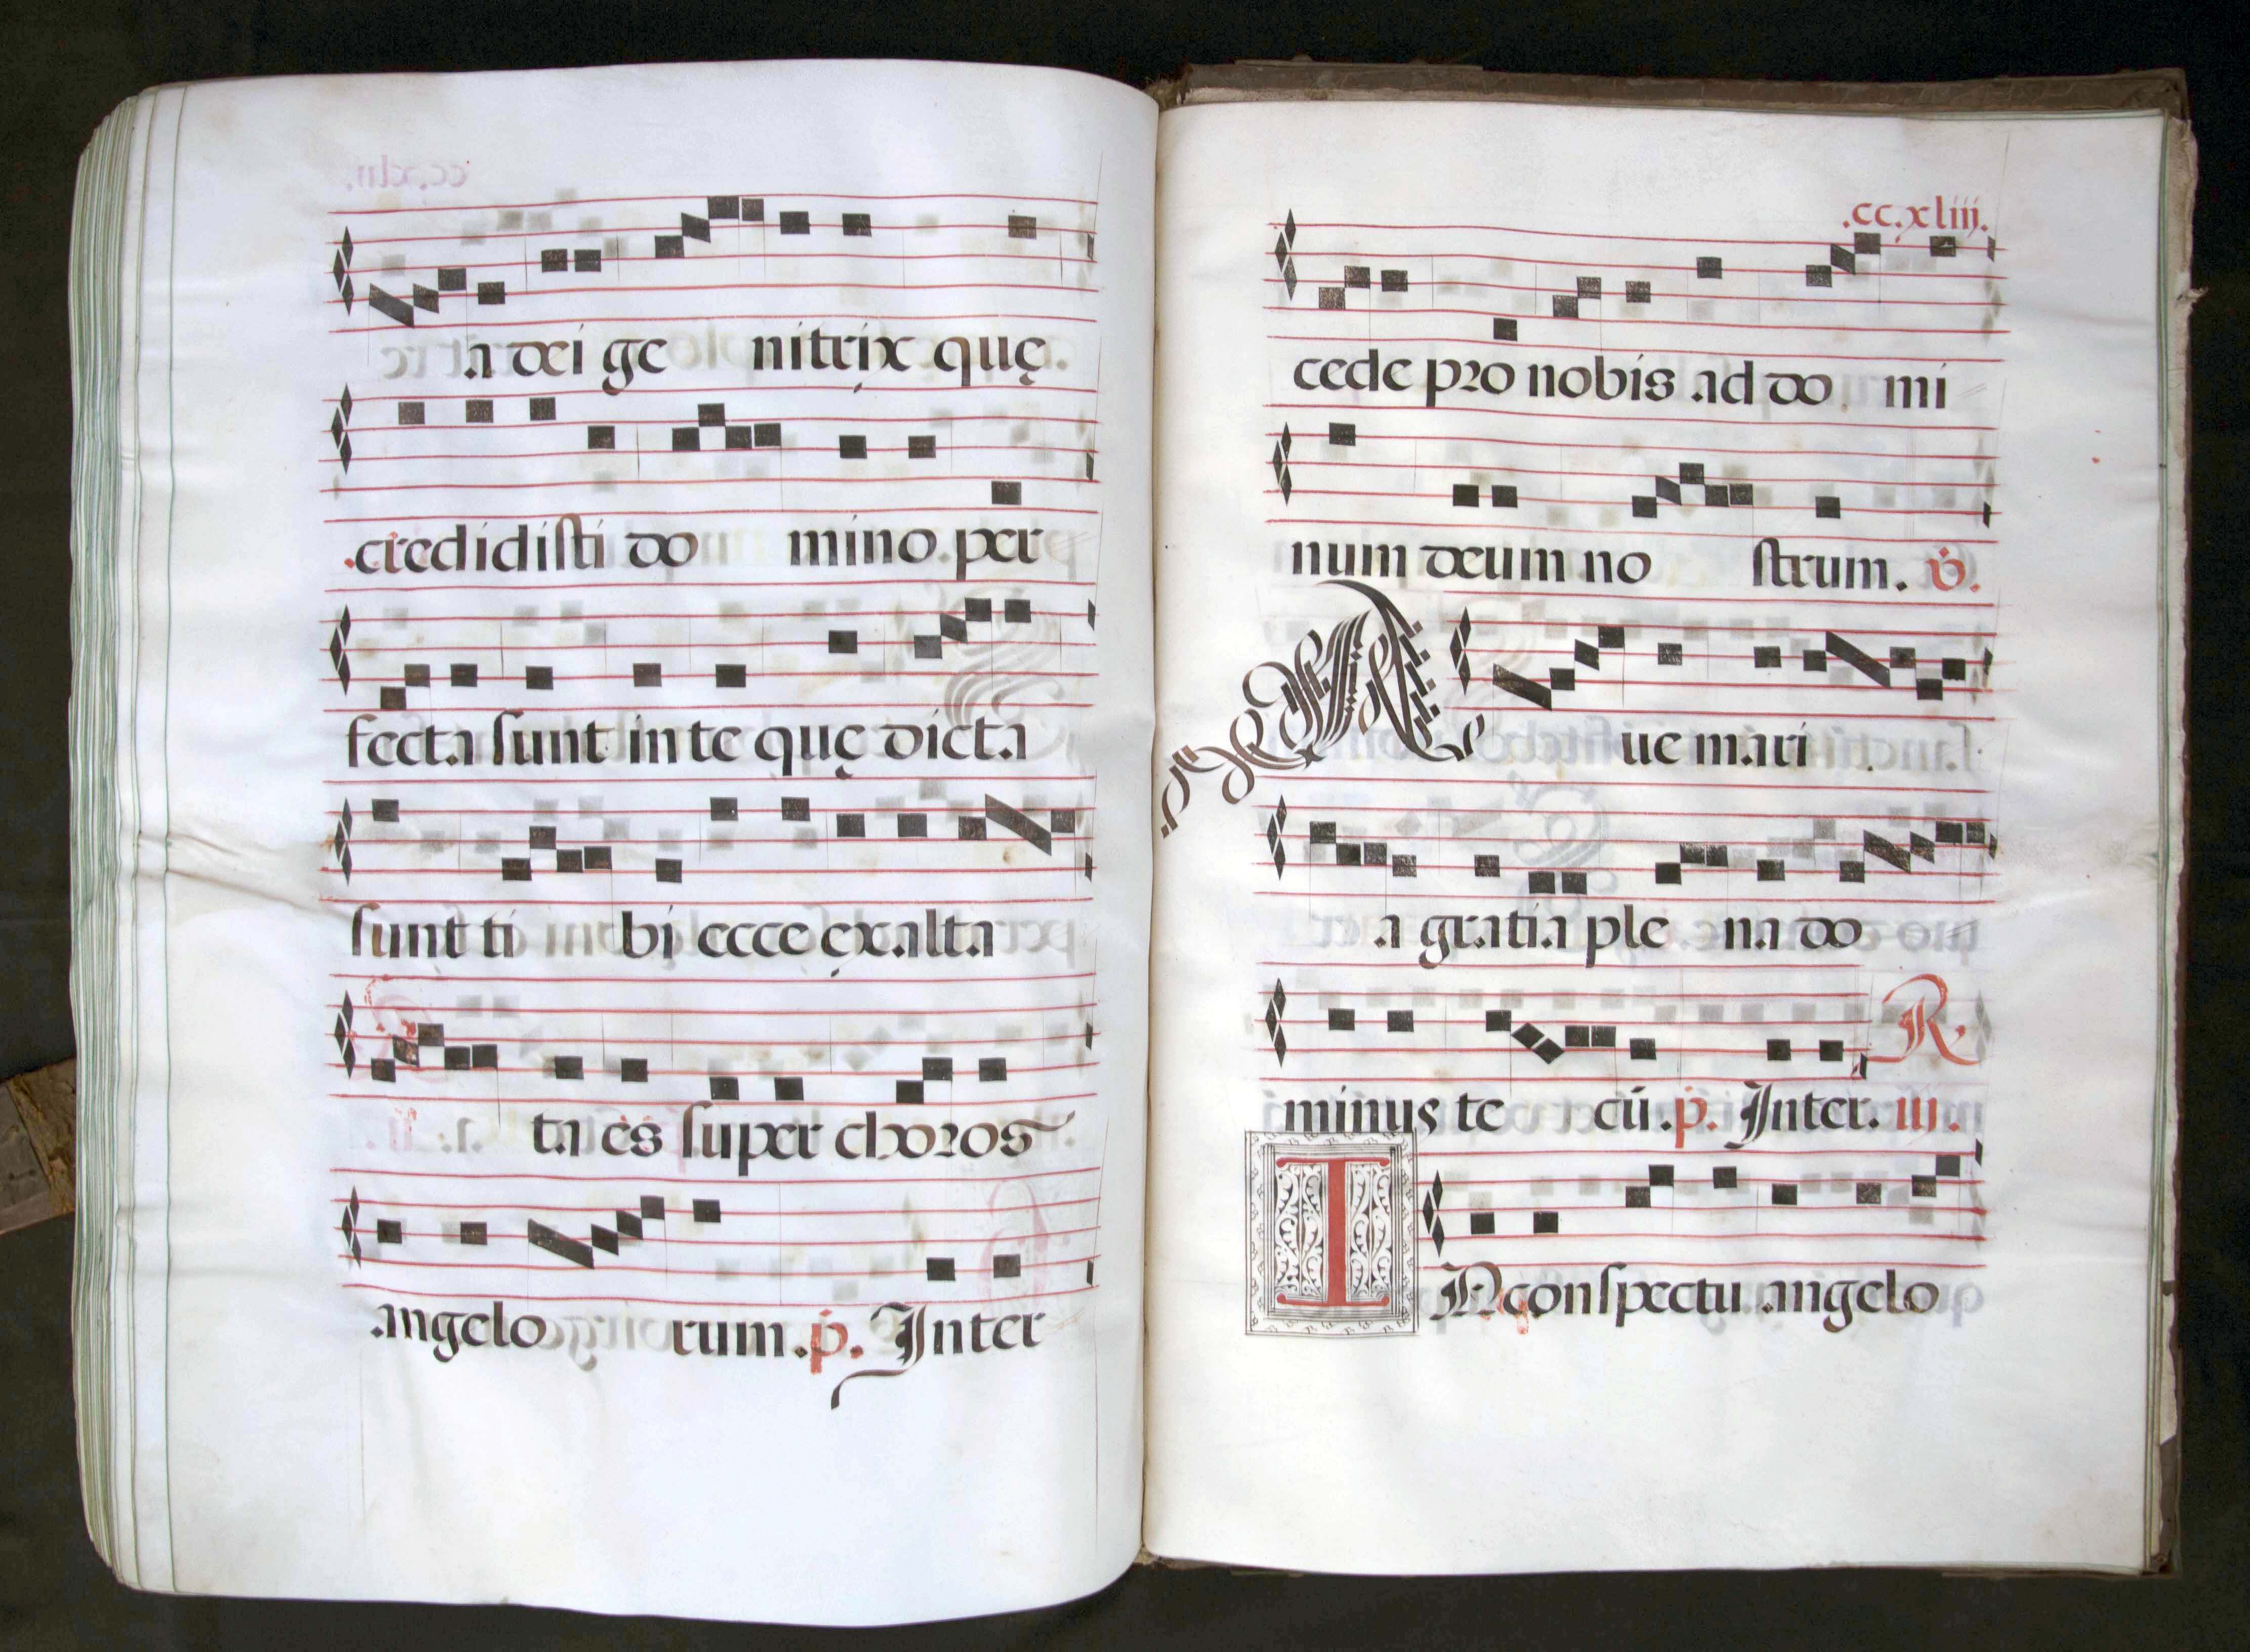 a dei ge nitrix quę
credidisti do mino. per
fecta sunt in te quę dicta
sunt ti bi ecce exalta
ta es super choros
angelo rum. p. Inter
.cc.xliij.
cede pro nobis ad do mi
num deum no strum. v.
Aue mari
a gratia ple na do
R.
minus te cū. p. Inter. iij.
IN conspectu angelo